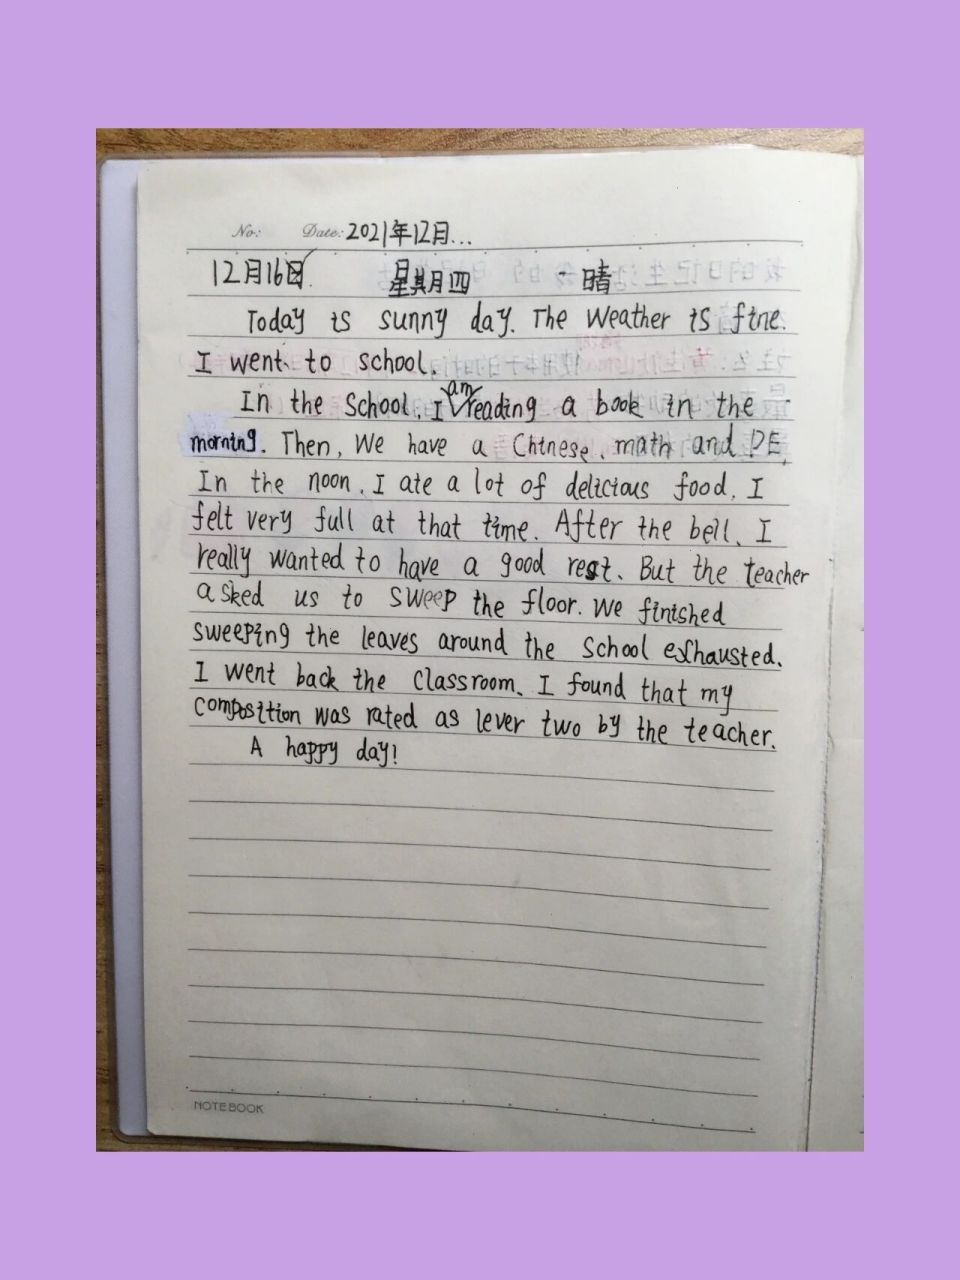 No: Date: 2021年12月...
12月16日 星期四 晴
Today is sunny day. The Weather is fine.
I went to school.
In the School, I am reading a book in the
morning. Then, We have a Chinese, math and PE,
In the noon, I ate a lot of delicious food, I
felt very full at that time. After the bell, I
really wanted to have a good rest. But the teacher
asked us to sweep the floor. We finished
sweeping the leaves around the School exhausted.
I went back the Classroom, I found that my
composition was rated as lever two by the teacher.
A happy day!
NOTEBOOK